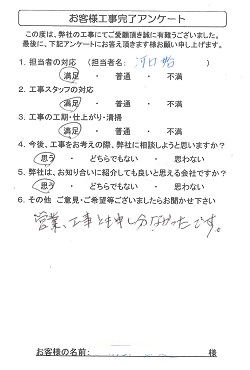 お客様工事完了アンケート
この度は、弊社の工事にてご受願頂き誠に有難うございました。
最後に、下記アンケートにお答え頂きます様お願い申し上げます。
1. 担当者の対応 (担当者名: 河口 )
満足 ・ 普通 ・ 不満
2. 工事スタッフの対応
満足 ・ 普通 ・ 不満
3. 工事の工期・仕上がり・清掃
満足 ・ 普通 ・ 不満
4. 今後、工事をお考えの際、弊社に相談しようと思いますか?
思う ・ どちらでもない ・ 思わない
5. 弊社は、お知り合いに紹介しても良いと思える会社ですか?
思う ・ どちらでもない ・ 思わない
6. その他 ご意見・ご希望等ございましたらお聞かせ下さい
営業、工事とも申し分なかったです。
お客様の名前: 様